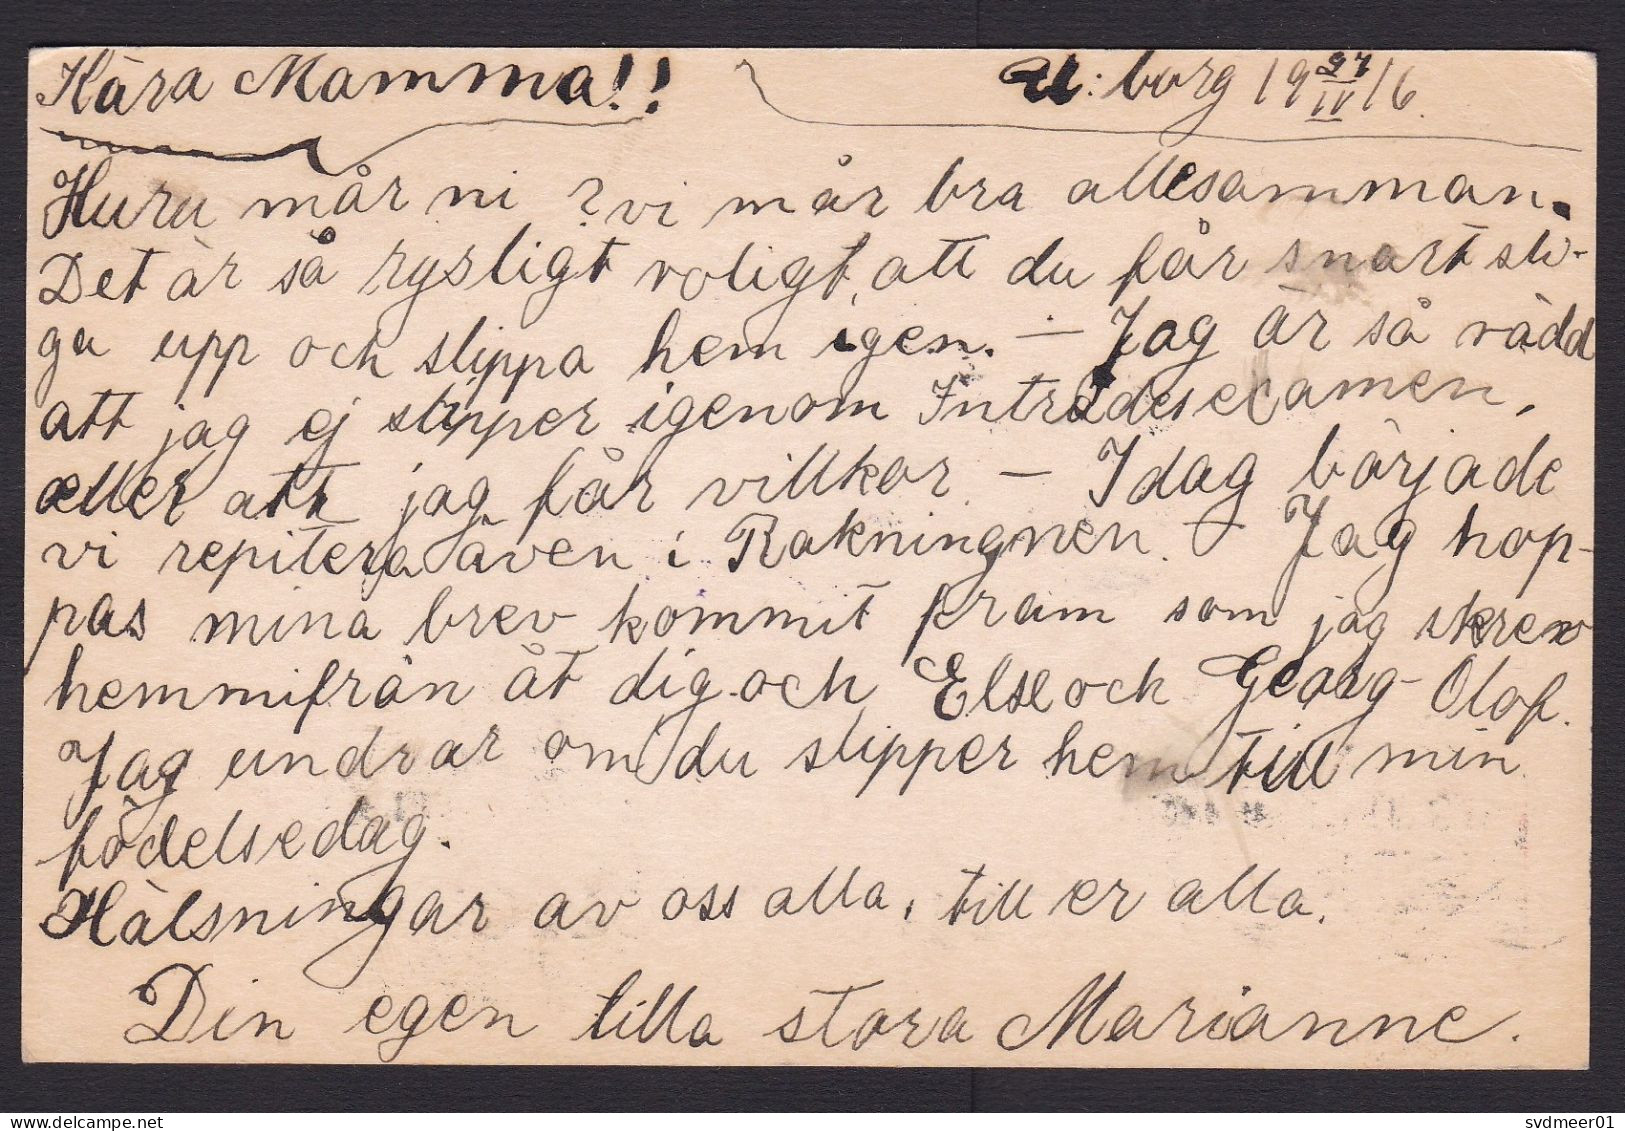 Kära Mamma!! U:borg 19 27/IV 16.
Huru mår ni? vi mår bra allesamman.
Det är så rysligt roligt, att du får snart sti-
ga upp och slippa hem igen. — Jag är så rädd
att jag ej slipper igenom Inträdesexamen,
eller att jag får villkor. — Idag började
vi repitera även i Räkningnen. — Jag hop-
pas mina brev kommit fram som jag skrev
hemmifrån åt dig och Else och Georg Olof.
Jag undrar om du slipper hem till min
födelsedag.
Hälsningar av oss alla, till er alla.
Din egen lilla stora Marianne.
svdmeer01